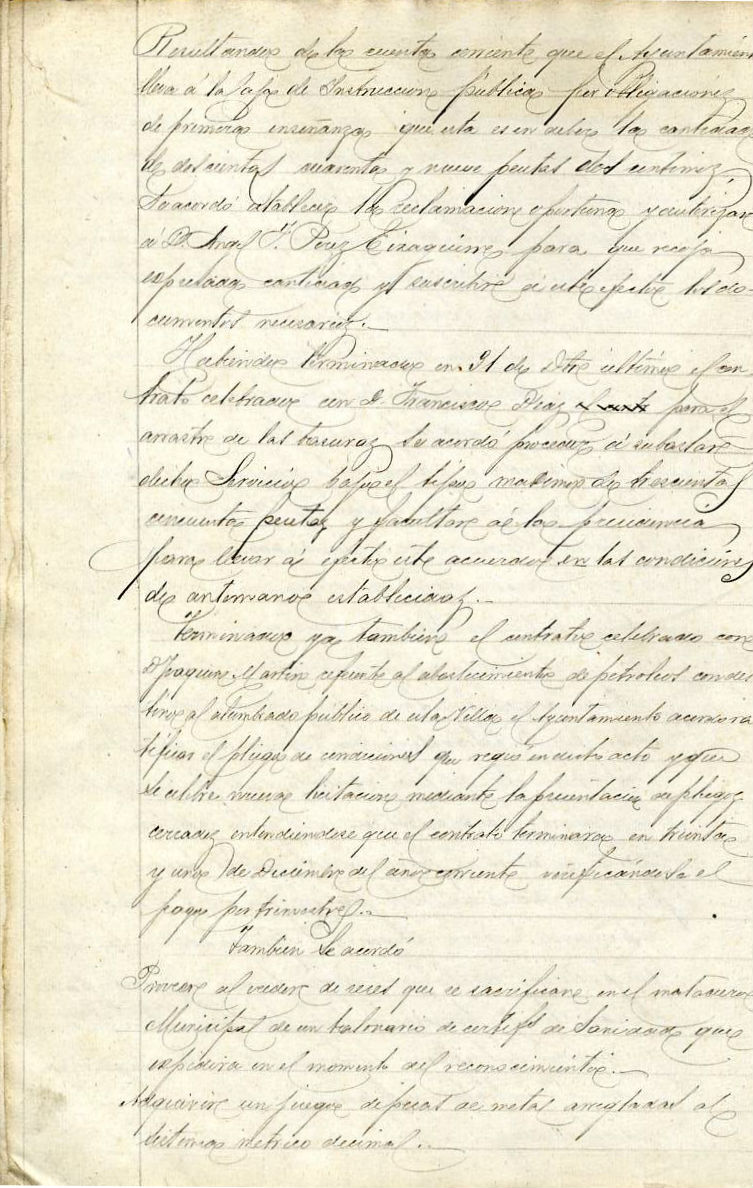 Resultando de la cuenta corriente que el Ayuntamien
lleva á la Caja de Instruccion pública por obligaciones
de primera enseñanza que esta es en deber la cantidad
de doscientas cuarenta y nueve pesetas dos centimos,
Se acordó establecer la reclamacion oportuna y autorizar
á D. Angel F. Perez Eizaguirre para que recoja
espresada cantidad y suscribir á este efecto los do-
cumentos necesarios.
Habiendo terminado en 31 de Dbre último el con
trato celebrado con D. Francisco Diaz para el
arrastre de las basuras Se acordó proceder á subastar
dicho Servicio bajo el tipo maximo de trescientas
cincuenta pesetas y facultar á la presidencia
para llevar á efecto este acuerdo en las condiciones
de antemano establecidas.
Terminado ya tambien el contrato celebrado con
D Joaquin Martin referente al abastecimiento de petroleo con des
tino al alumbrado público de esta Villa el Ayuntamiento acordo ra
tificar el pliego de condiciones que regió en dicho acto y que
se celebre nueva licitacion mediante la presentacion de pliegos
cerrados entendiendose que el contrato terminara en treinta
y uno de Diciembre del año corriente verificándose el
pago por trimestres.
Tambien Se acordó
Proveer al veedor de reses que se sacrifican en el matadero
Municipal de un talonario de certifs de Sanidad que
espedira en el momento del reconocimiento.
Adquirir un juego de pesas de metal arregladas al
sistema métrico decimal.